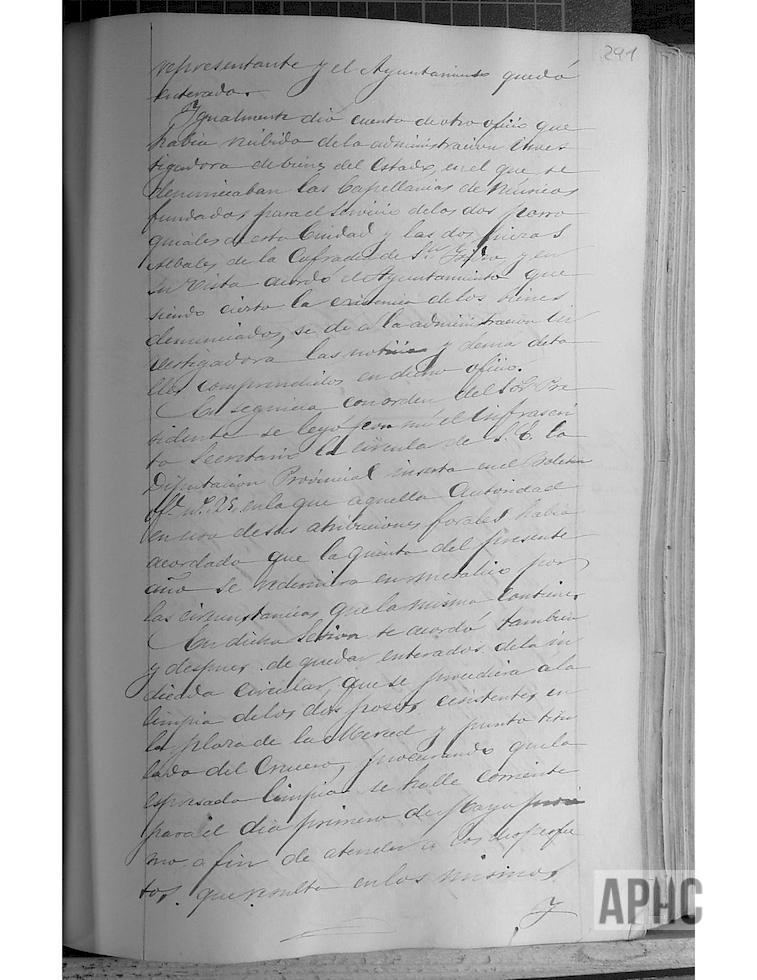 291
representante y el Ayuntamiento quedó
enterado.
Igualmente dió cuenta de otro oficio que
habia recibido de la administracion inves
tigadora de bienes del Estado, en el que se
denunciaban las Capellanias de Musicos
fundados para el servicio de las dos parro
quiales de esta Ciudad y las dos
de la Cofradia de y en
su vista acordó el Ayuntamiento que
siendo cierto la existencia de los bienes
denunciados, se de a la administracion in
vestigadora las noticias y demas deta
lles comprendidos en dicho oficio.
En seguida con orden del Sor. Pre
sidente se leyó por mi el Infrascri
to Secretario la circular de S. E. la
Diputacion Provincial inserta en el Boletin
of. nº 25, en la que aquella Autoridad
en uso de sus atribuciones forales habia
acordado que la quinta del presente
año se redimiera en metalico por
las circunstancias que la misma contiene.
En dicha Sesion se acordó tambien
y despues de quedar enterados de la in
dicada circular, que se procediera a la
limpia de los dos posos ecsistentes en
la plaza de la Merced y punto titu
lado del Crucero, procurando que la
espresada limpia se halle corriente
para el dia primero de Mayo procsi
mo a fin de atender a los desperfec
tos que resulte en los mismos.
Y
APHC